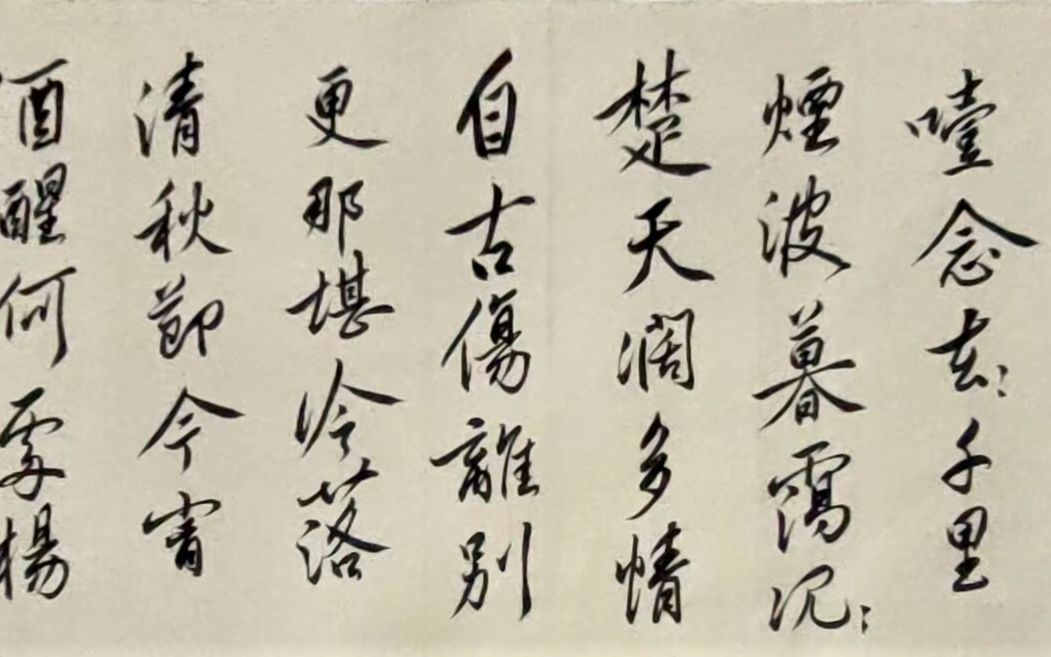 噎念去〻千里
煙波暮靄沉〻
楚天濶多情
自古傷離別
更那堪冷落
清秋節今宵
酒醒何處楊